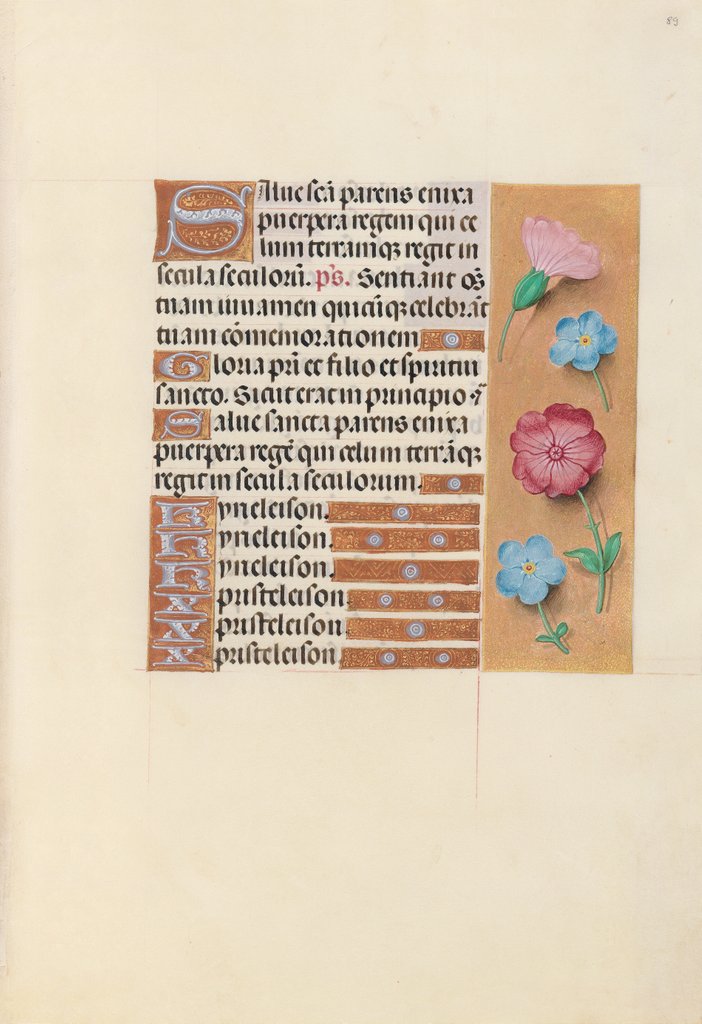 89
Salue sc̄a parens enixa
puerpera regem qui ce
lum terramq̄ regit in
secula seculoru̅. p̄s. Sentiant om̄s
tuam iuuamen quicūq̄ celebrāt
tuam cōmemorationem
Gloria pr̄i et filio et spiritui
sancto. Sicut erat in principio ⁊
Salue sancta parens enixa
puerpera regē qui celum terrāq̄
regit in secula seculorum.
Kyrieleison.
Kyrieleison.
Kyrieleison.
Xpristeleison
Xpristeleison.
Xpristeleison